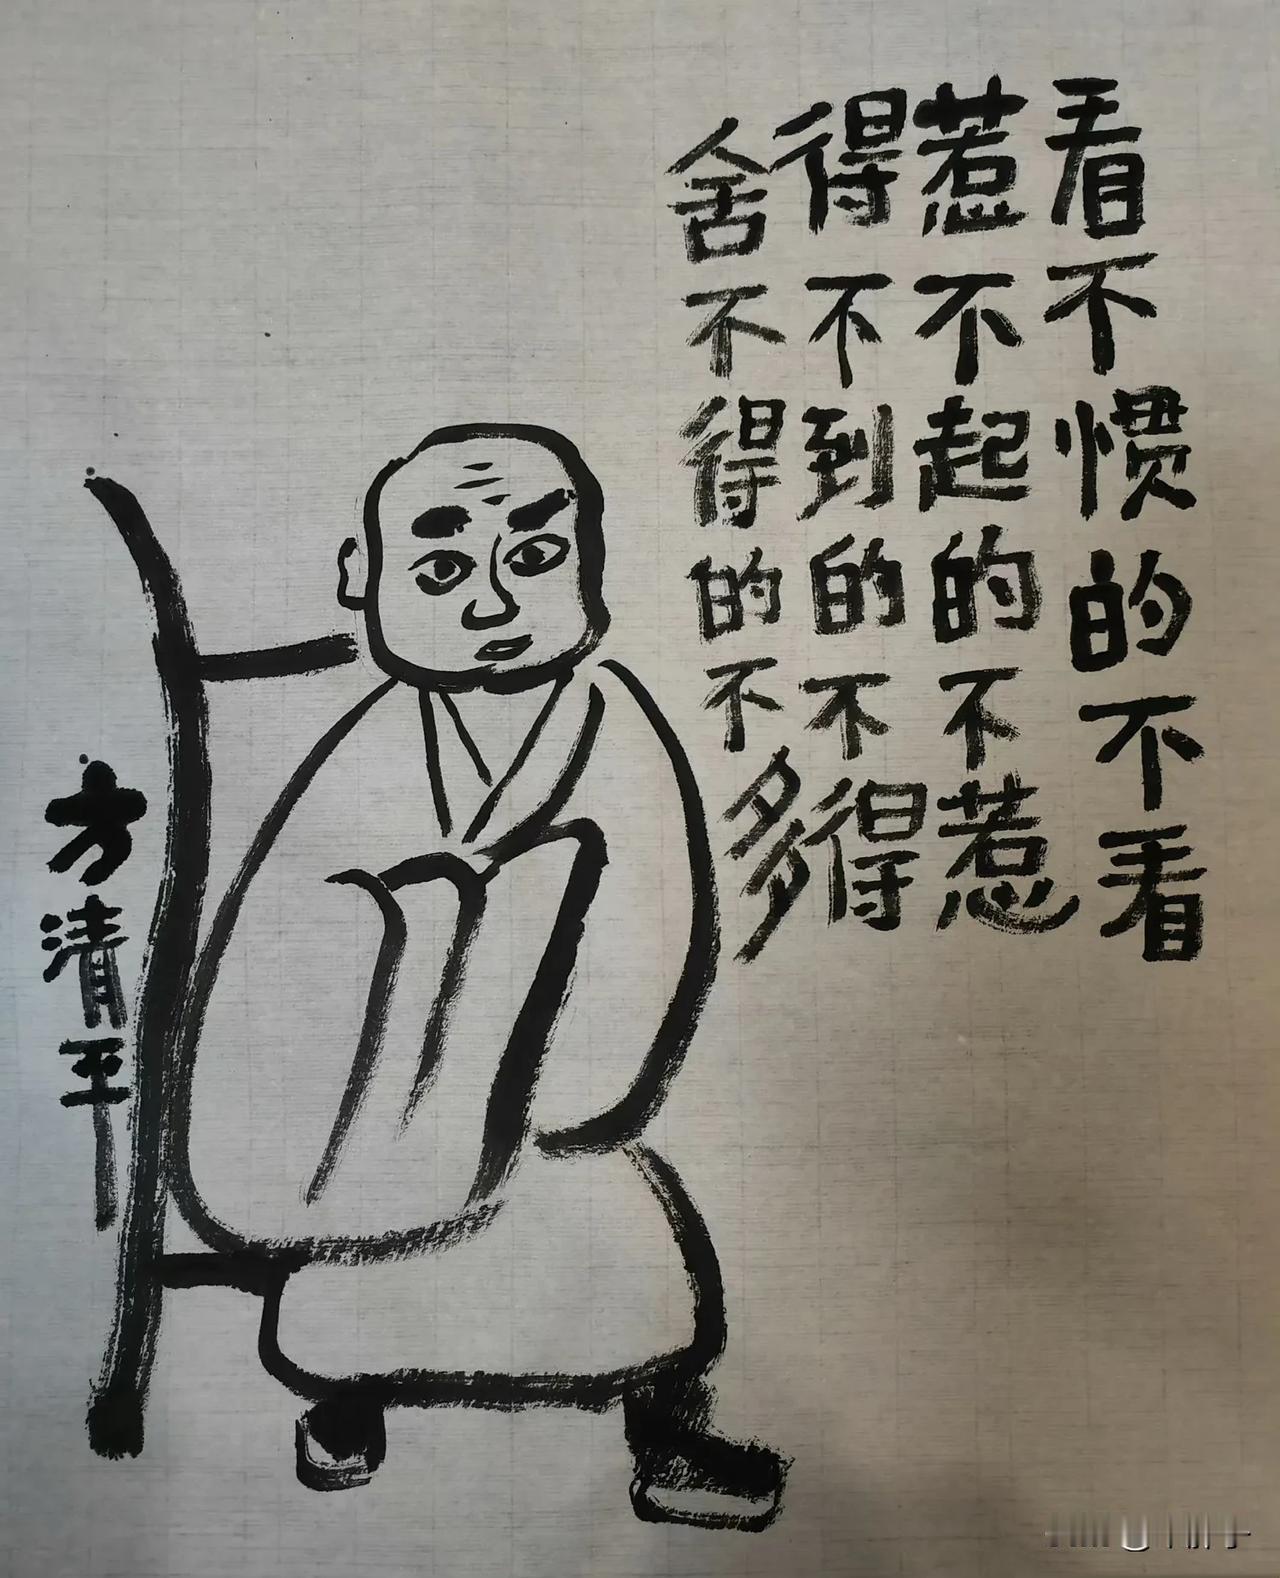 看不惯的不看
惹不起的不惹
得不到的不得
舍不得的不多
方清平